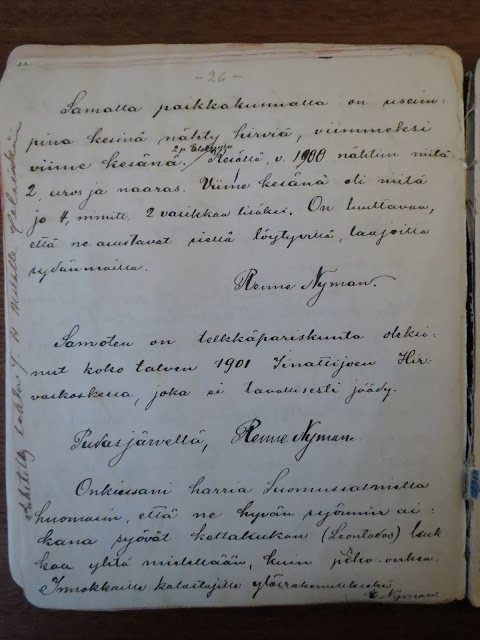 - 26 -
Samalla paikkakunnalla on useim-
pina kesinä nähty hirviä, viimmeksi
viime kesänä. Kesällä, v. 1900 nähtiin niitä
2 p. Elokuuta
2, uros ja naaras. Viime kesänä oli niitä
jo 4, nimitt. 2 vasikkaa lisäksi. On luultavaa,
että ne asustavat siellä löytyvillä, laajoilla
sydänmailla.
Renne Nyman.
Samoten on telkkäpariskunta oleksi-
nut koko talven 1901 Iinattijoen Hir-
vaskoskessa, joka ei tavallisesti jäädy.
Pudasjärvellä, Renne Nyman
Onkiessani harria Suomussalmella
huomasin, että ne hyvän syönnin ai-
kana syövät keltakukan (Leontodos)
kaa yhtä mielellään, kuin perho-onkea.
Innokkaille kalastajille
E Nyman
Lähetetty lehden